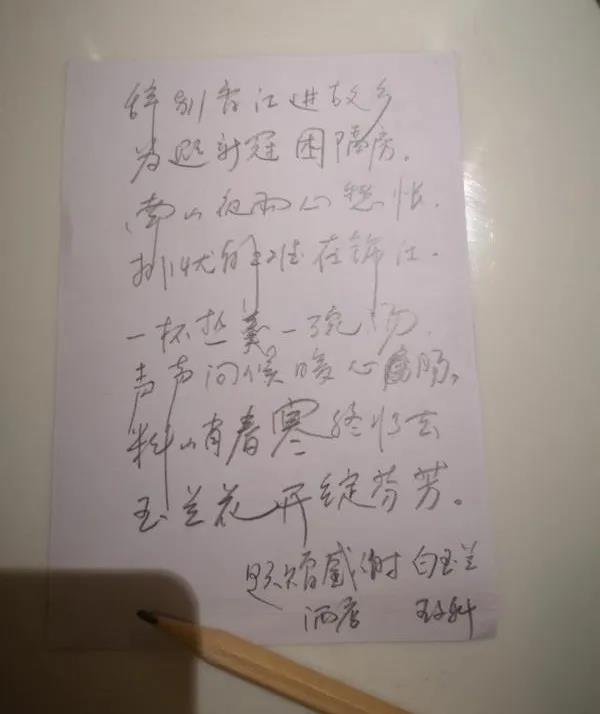 辞别香江进故乡
为避新冠困隔房.
南山夜雨心愁怅.
排忧解难在锦江.
一杯热羹一碗汤.
声声问候暖心肠。
料峭春寒终将去
玉兰花开绽芬芳。
题赠感谢白玉兰
酒店